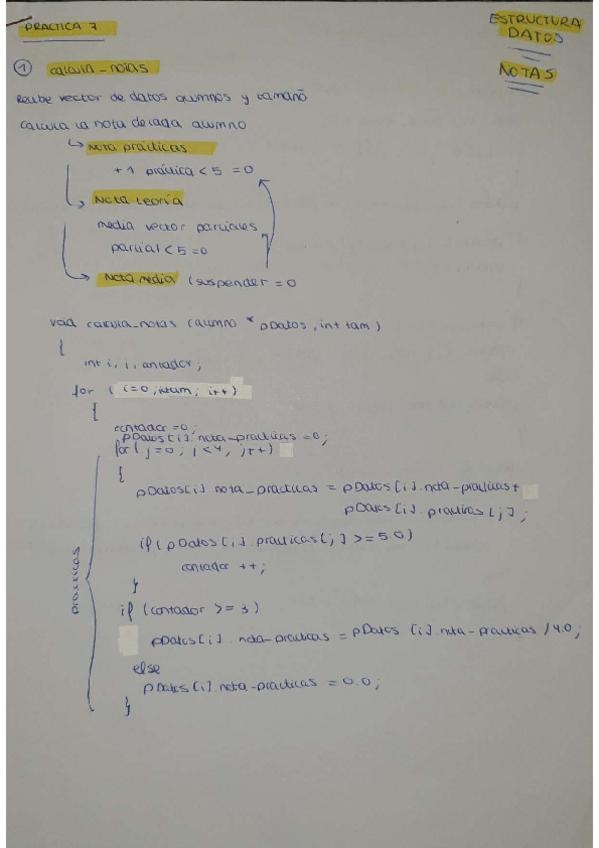 PRACTICA 7
ESTRUCTURA
DATOS
NOTAS
① calcula_notas
Recibe vector de datos alumnos y tamaño
calcula la nota de cada alumno
↳ Nota prácticas
+1 práctica < 5 = 0
↳ Nota teoría
media vector parciales
parcial < 5 = 0
↳ Nota media (suspender = 0
void calcula_notas (alumno * pDatos, int tam)
{
int i, j, contador;
for ( i=0; i<tam; i++)
{
contador = 0;
pDatos[i].nota-practicas = 0;
for( j=0; j<4; j++)
{
pDatos[i].nota_practicas = pDatos[i].nota-practicas +
pDatos[i].practicas[j];
if( pDatos[i].practicas[j] >= 5.0)
contador ++;
}
practicas
if (contador >= 3)
pDatos[i].nota-practicas = pDatos[i].nota-practicas / 4.0;
else
pDatos[i].nota-practicas = 0.0;
}